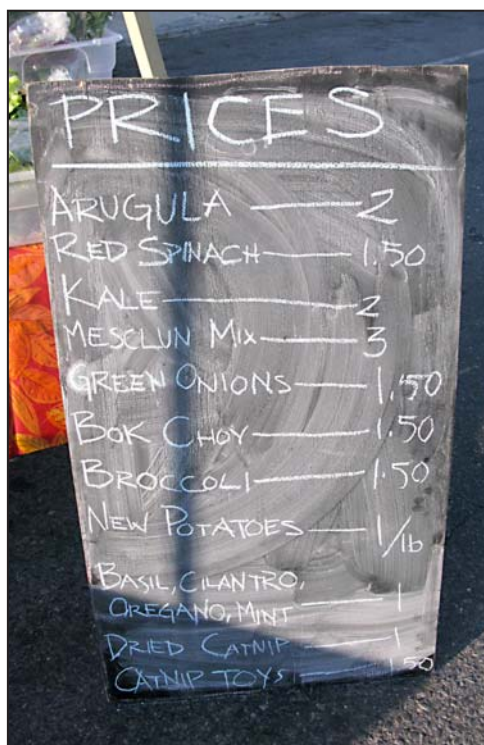 PRICES
ARUGULA — 2
RED SPINACH — 1.50
KALE — 2
MESCLUN MIX — 3
GREEN ONIONS — 1.50
BOK CHOY — 1.50
BROCCOLI — 1.50
NEW POTATOES — 1/lb
BASIL, CILANTRO,
OREGANO, MINT — 1
DRIED CATNIP — 1
CATNIP TOYS — 1.50